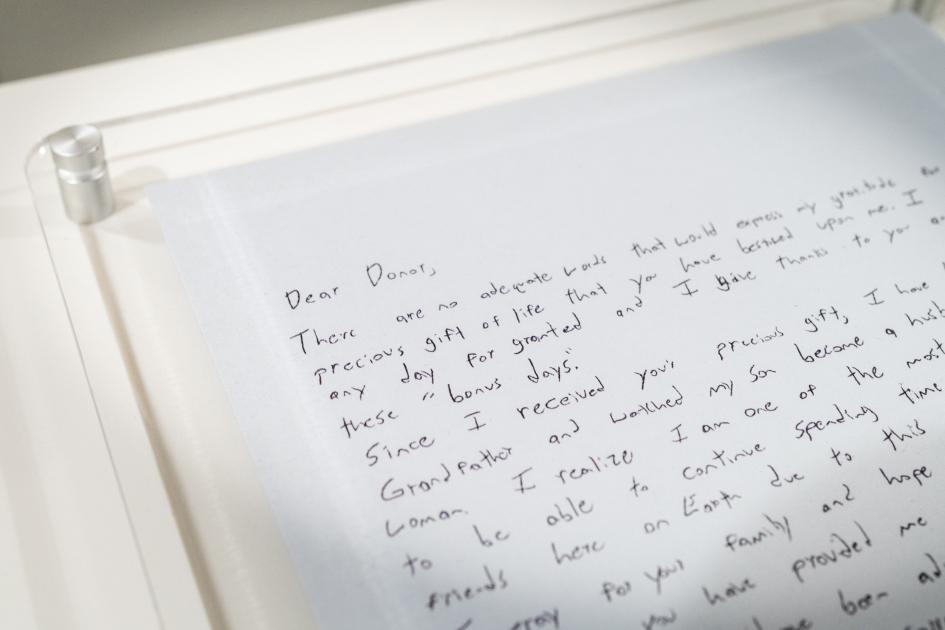 Dear Donor,
There are no adequate words that would express my gratitude for
precious gift of life that you have bestwed upon me. I
any day for granted and I give thanks to you
these "bonus days."
Since I received your precious gift, I have
Grandfather and watched my son become a husb
woman. I realize I am one of the most
to be able to continue spending time
friends here on Earth due to this
I pray for your family and hope
you have provided me
have been